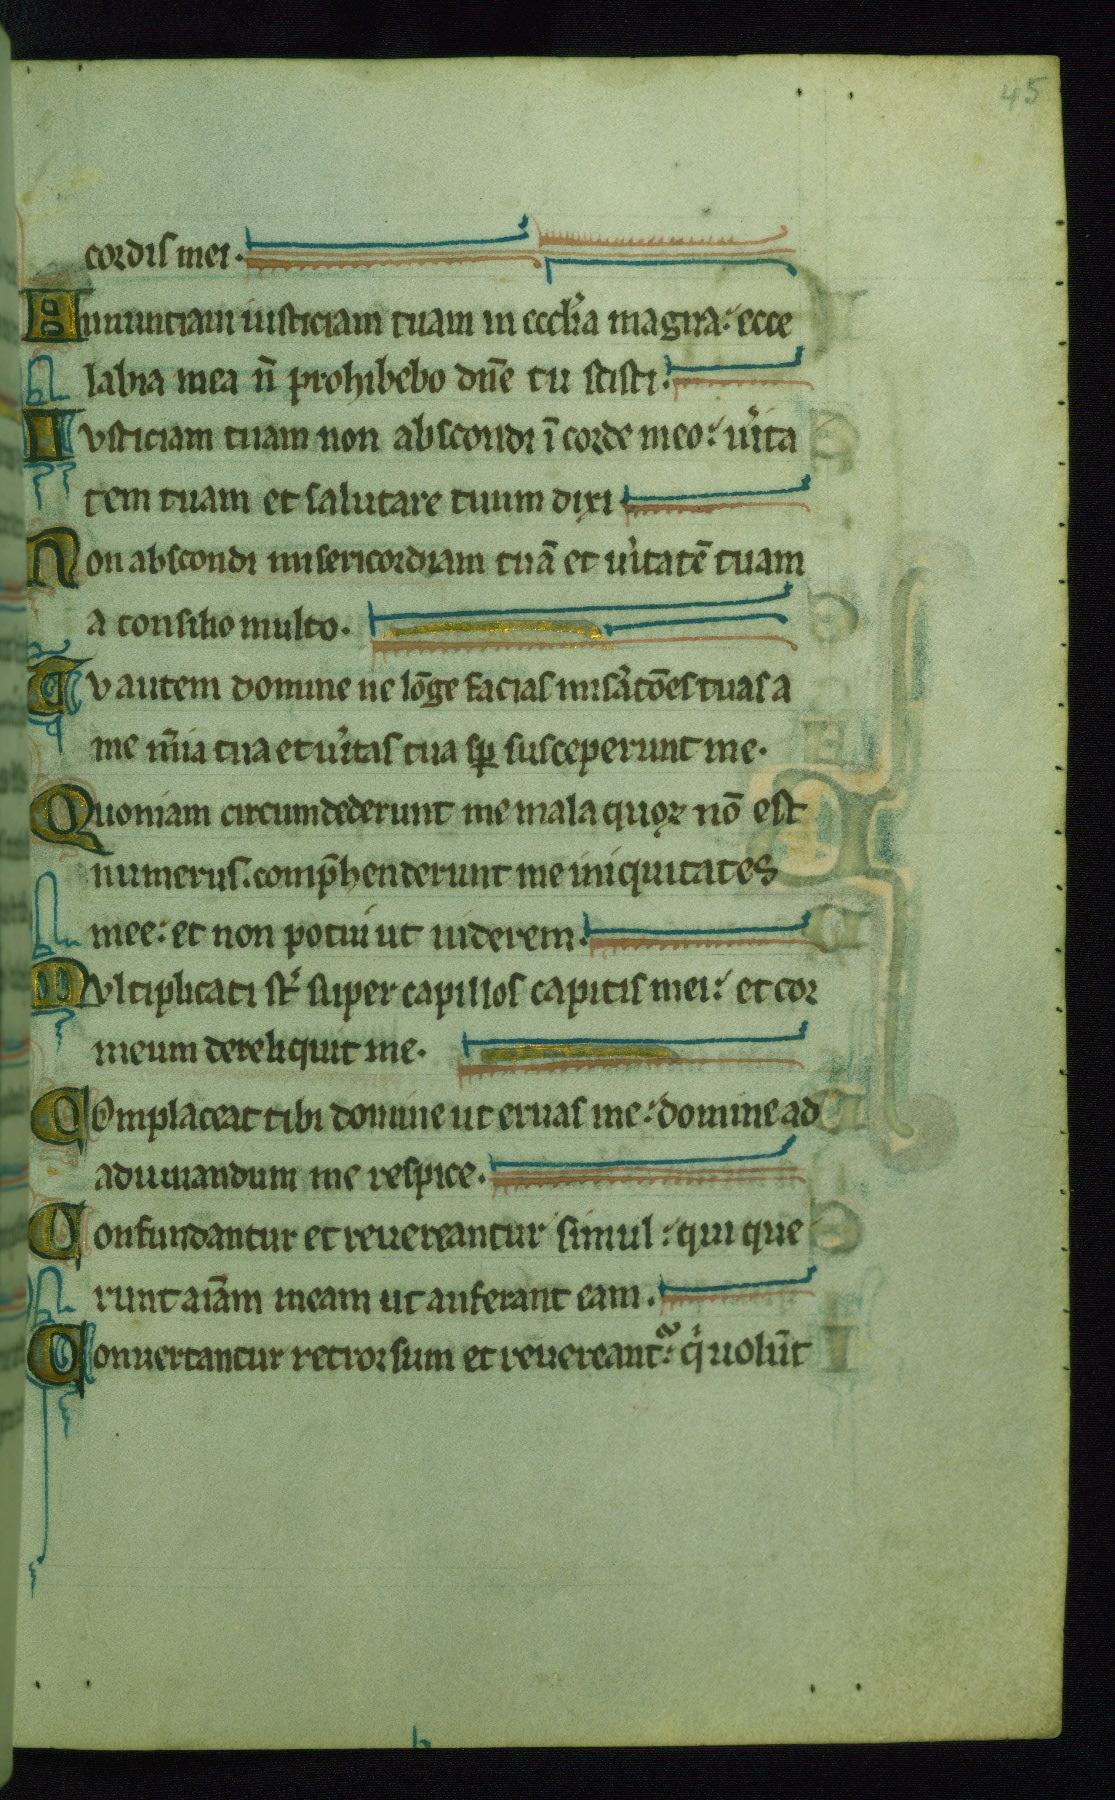 45
cordis mei.
Annuntiaui iusticiam tuam in eccl̄ia magna: ecce
labia mea n̄ prohibebo dn̄e tu scisti:
Iusticiam tuam non abscondi ī corde meo: uˀita
tem tuam et salutare tuum dixi
Non abscondi misericordiam tuā et uˀitatē tuam
a consilio multo.
Tu autem domine ne lōge facias misˀatōes tuas a
me m̄ia tua et uˀitas tua sꝑ susceperunt me.
Quoniam circumdederunt me mala quoꝝ nō est
numerus. comp̄henderunt me iniquitates
mee: et non potui ut uiderem:
Multiplicati st̄ super capillos capitis mei: et cor
meum dereliquit me.
Complaceat tibi domine ut eruas me: domine ad
adiuuandum me respice.
Confundantur et reuereantur simul: qui que
runt aīam meam ut auferant eam.
Conuertantur retrorsum et reuereantᷣ: qͥ uolūt